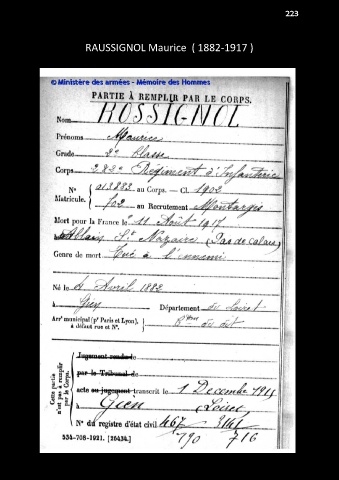 223
RAUSSIGNOL Maurice ( 1882-1917 )
© Ministère des armées - Mémoire des Hommes
PARTIE À REMPLIR PAR LE CORPS.
Nom ROSSIGNOL
Prénoms Maurice
Grade 2e Classe
Corps 282e Régiment d'Infanterie
N° 013883 au Corps. — Cl. 1902
Matricule. 702 au Recrutement Montargis
Mort pour la France le 11 Août 1917
Ablain St Nazaire (Pas de Calais)
Genre de mort Tué à l'ennemi
Né le 4 Avril 1882
à Département du Loiret
Arrt municipal (pr Paris et Lyon), à défaut rue et N°.
Cette partie n'est pas à remplir par le Corps.
Jugement rendu le
par le Tribunal de
acte ou jugement transcrit le 1 Décembre
à Gien (Loiret
N° du registre d'état civil 467
534-708-1921. [26434.] 790 716